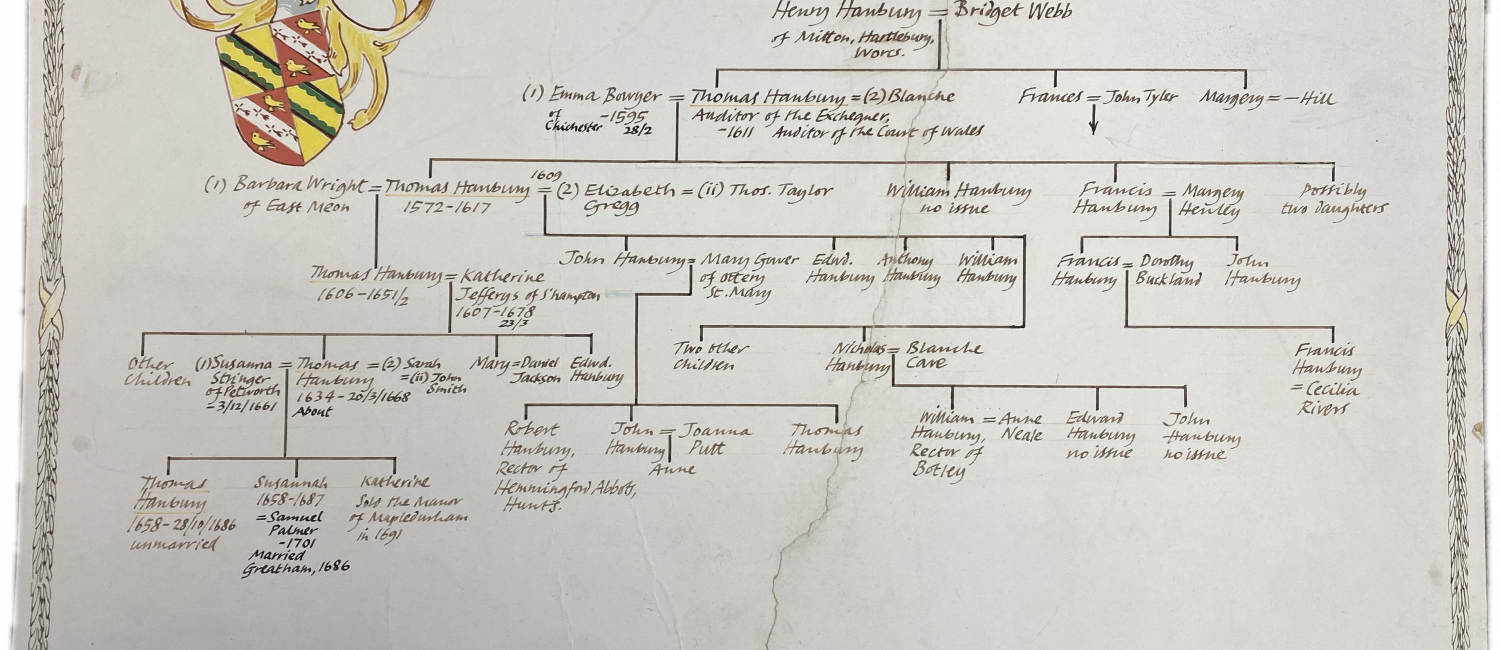 Henry Hanbury = Bridget Webb
of Mitton, Hartlebury,
Worcs.
(1) Emma Bowyer = Thomas Hanbury = (2) Blanche
of
Chichester
-1595
28/2
Auditor of the Exchequer,
-1611 Auditor of the Court of Wales
Frances = John Tyler
Margery = — Hill
(1) Barbara Wright = Thomas Hanbury = (2) Elizabeth = (ii) Thos. Taylor
of East Meon
1572-1617
1609
Gregg
William Hanbury
no issue
Francis = Margery
Hanbury Henley
Possibly
two daughters
Thomas Hanbury = Katherine
1606-1651/2
Jefferys of S'hampton
1607-1678
23/3
John Hanbury = Mary Gover
of Ottery
St. Mary
Edwd.
Hanbury
Anthony
Hanbury
William
Hanbury
Francis = Dorothy
Hanbury Buckland
John
Hanbury
Other
Children
(1) Susanna = Thomas = (2) Sarah
Stringer
of Petworth
-3/12/1661
Hanbury
1634-20/3/1668
About
=(ii) John
Smith
Mary = Daniel
Jackson
Edwd.
Hanbury
Two other
Children
Nicholas = Blanche
Hanbury Care
Francis
Hanbury
= Cecilia
Rivers
Robert
Hanbury,
Rector of
Hemmingford Abbots,
Hunts.
John = Joanna
Hanbury Putt
Anne
Thomas
Hanbury
William = Anne
Hanbury, Neale
Rector of
Botley
Edward
Hanbury
no issue
John
Hanbury
no issue
Thomas
Hanbury
1658-28/10/1686
unmarried
Susannah
1658-1687
= Samuel
Palmer
-1701
Married
Greatham, 1686
Katherine
Sold the Manor
of Mapledurham
in 1691